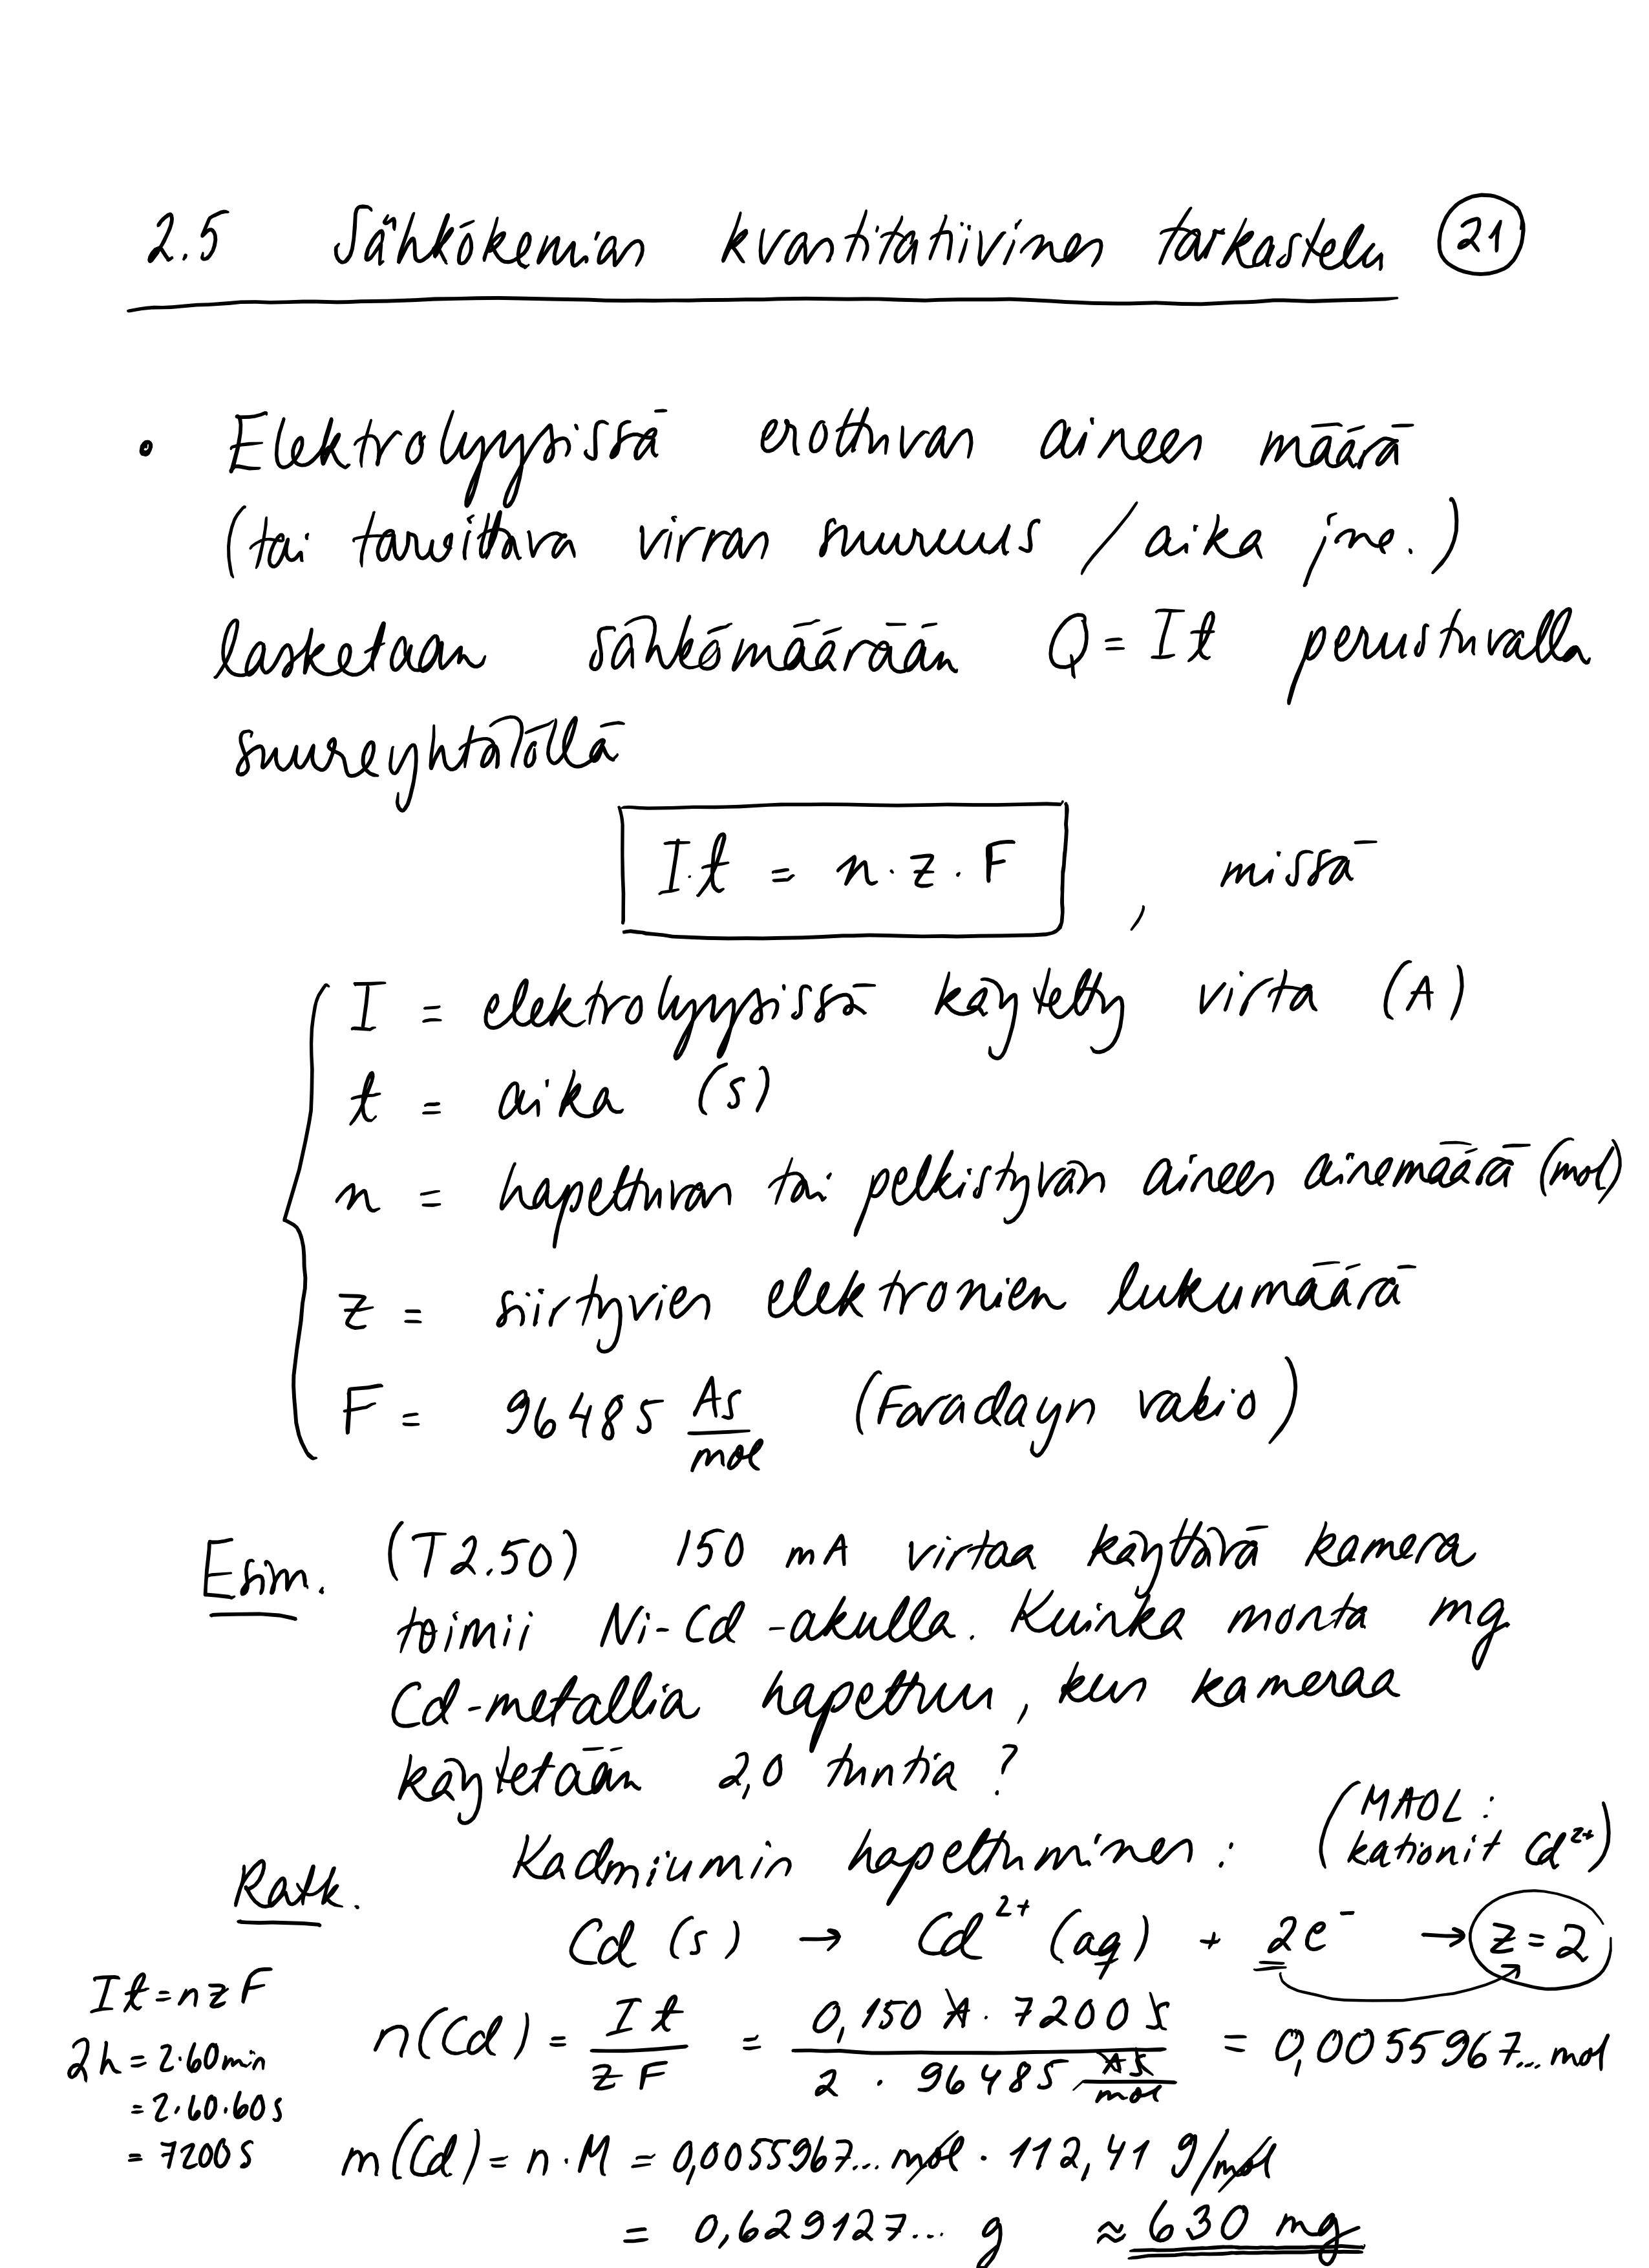 2.5 Sähkökemian kvantitatiivinen tarkastelu 21
• Elektrolyysissä erottuvan aineen määrä
(tai tarvittava virran suuruus / aika jne.)
lasketaan sähkömäärään Q = It perustuvalla
suureyhtälöllä
I·t = n·z·F , missä
I = elektrolyysissä käytetty virta (A)
t = aika (s)
n = hapettuvan tai pelkistyvän aineen ainemäärä (mol)
z = siirtyvien elektronien lukumäärä
F = 96485 As/mol (Faradayn vakio)
Esim. (T2.50) 150 mA virtaa käyttävä kamera
toimii Ni-Cd -akulla. Kuinka monta mg
Cd-metallia hapettuu, kun kameraa
käytetään 2,0 tuntia?
(MAOL:
kationit Cd²⁺)
Ratk. Kadmiumin hapettuminen:
Cd (s) → Cd²⁺ (aq) + 2e⁻ → z = 2
It = nzF
2h = 2·60min
= 2·60·60s
= 7200s
n(Cd) = It/zF = 0,150 A · 7200 s / 2 · 96485 As/mol = 0,0055967... mol
m(Cd) = n·M = 0,0055967... mol · 112,41 g/mol
= 0,629127... g ≈ 630 mg